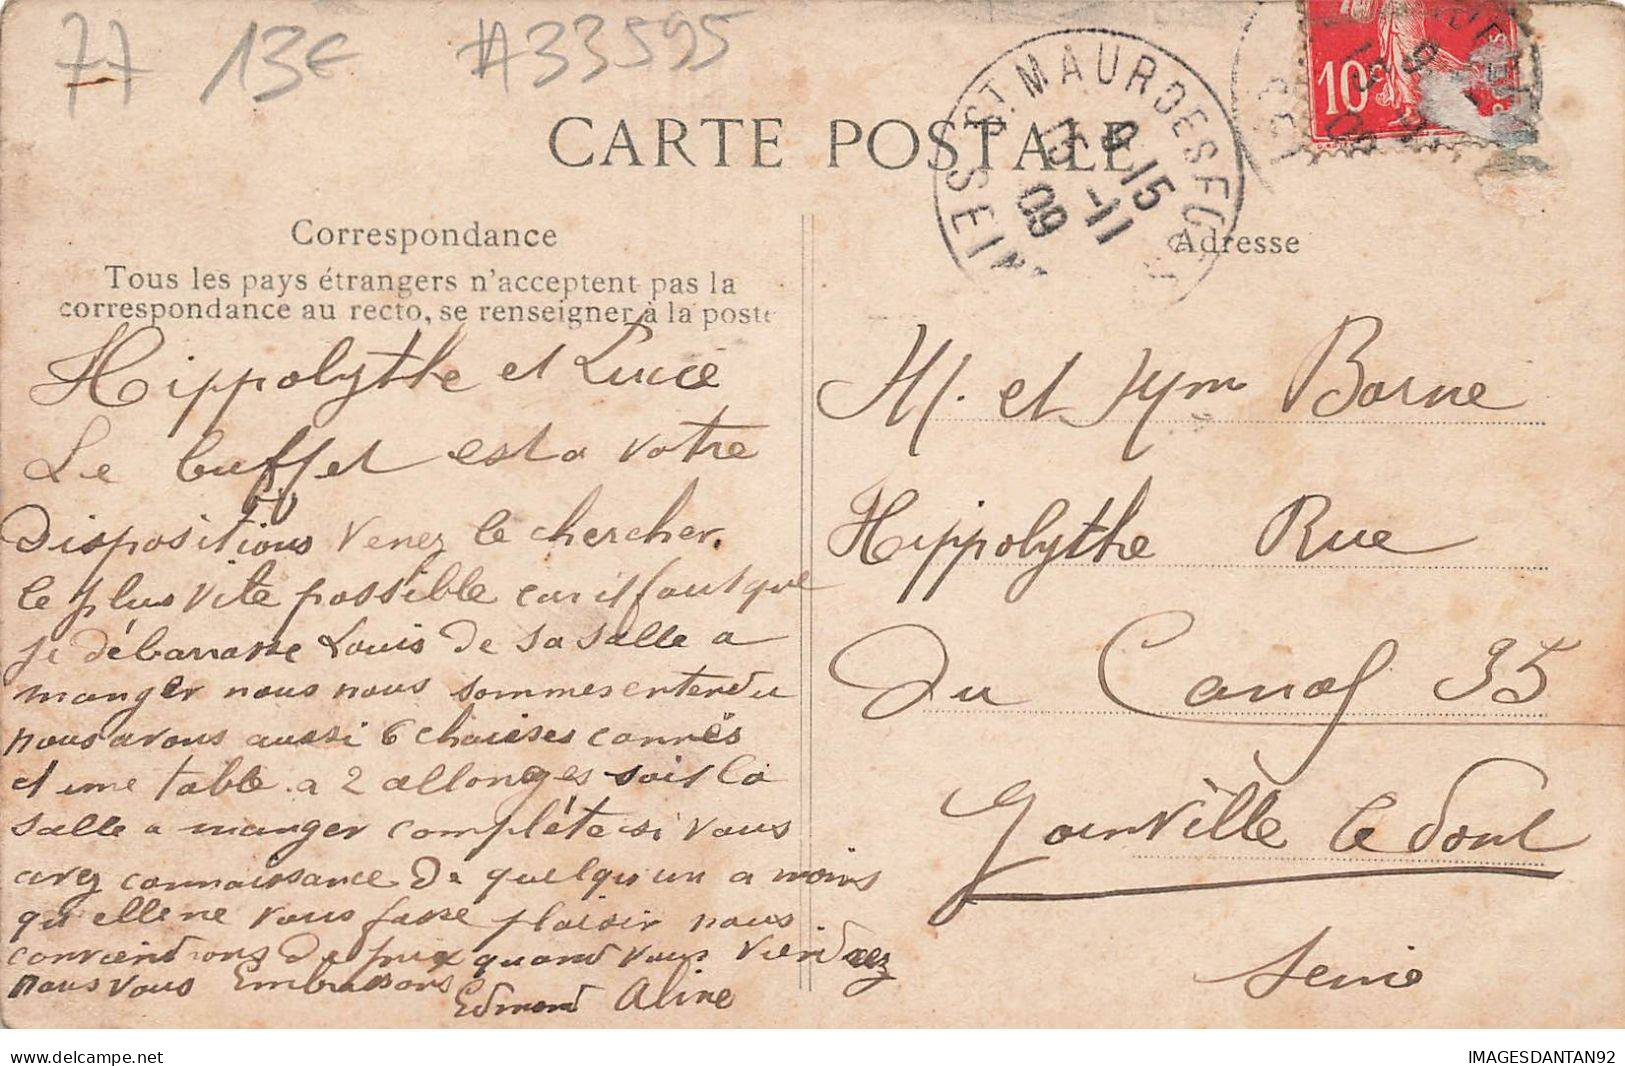 77 13€ #33595
CARTE POSTALE
St. MAUR DES FOSSÉS
SEINE
9 15
13 -11
09
10c
Correspondance
Tous les pays étrangers n'acceptent pas la
correspondance au recto, se renseigner à la poste
Hippolythe et Lucie
Le buffet est a votre
dispositions venez le chercher
le plus vite possible car il faut que
je débarrasse Louis de sa salle a
manger nous nous sommes entendu
nous avons aussi 6 chaises cannés
et une table a 2 allonges soit la
salle a manger complète si vous
avez connaissance de quelqu'un a moins
qu elle ne vous fasse plaisir nous
conviendrons de prix quand vous viendrez
nous vous Embrassons
Edmond Aline
Adresse
M. et Mme Borne
Hippolythe Rue
du Canal 35
Joinville le Pont
Seine
www.delcampe.net
IMAGESDANTAN92